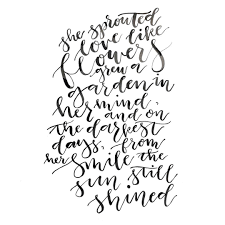 she sprouted
love like
flowers
grew a
garden in
her mind, and on
the darkest
days, from
her smile the
sun still
shined